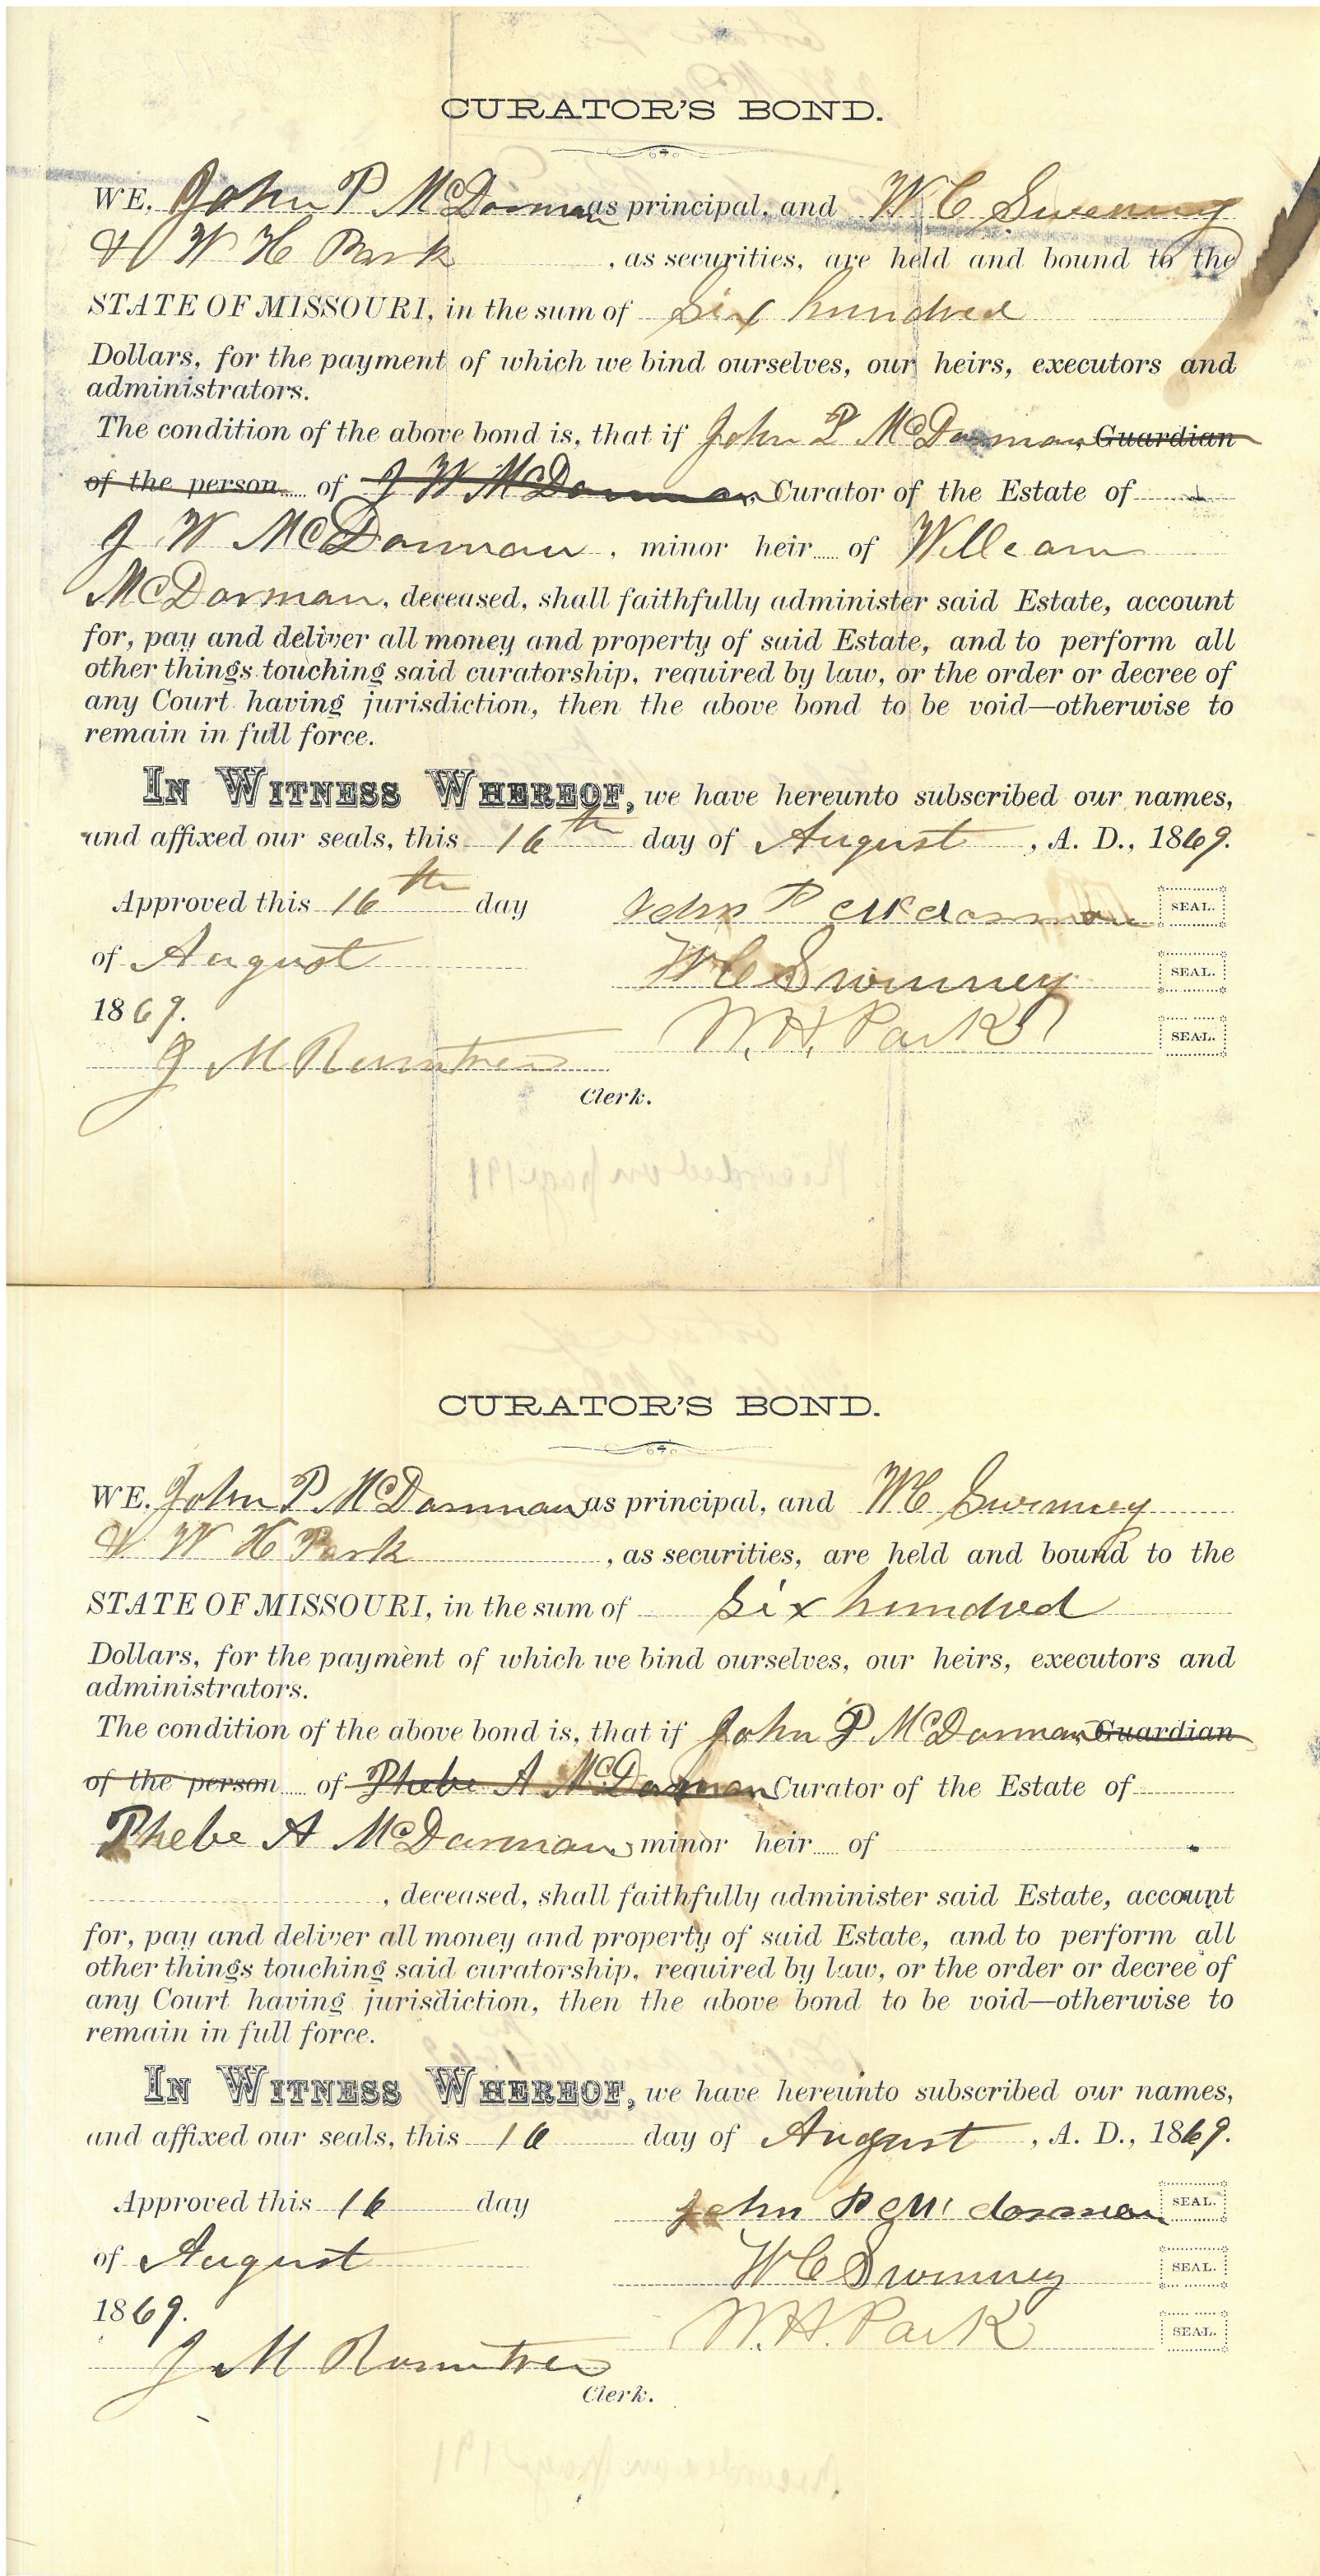 CURATOR'S BOND.
WE, John P McDorman as principal, and W C Sweeney
& W H Park , as securities, are held and bound to the
STATE OF MISSOURI, in the sum of Six hundred
Dollars, for the payment of which we bind ourselves, our heirs, executors and
administrators.
The condition of the above bond is, that if John P McDorman Guardian
of the person of J W McDorman Curator of the Estate of
J W McDorman, minor heir of William
McDorman, deceased, shall faithfully administer said Estate, account
for, pay and deliver all money and property of said Estate, and to perform all
other things touching said curatorship, required by law, or the order or decree of
any Court having jurisdiction, then the above bond to be void—otherwise to
remain in full force.
IN WITNESS WHEREOF, we have hereunto subscribed our names,
and affixed our seals, this 16th day of August, A. D., 1869.
Approved this 16th day John P McDorman SEAL.
of August W C Swinney SEAL.
1869. W. H. Park SEAL.
J M Rountree
Clerk.
Recorded on page 191
CURATOR'S BOND.
WE, John P McDorman as principal, and W C Swinney
& W H Park , as securities, are held and bound to the
STATE OF MISSOURI, in the sum of Six hundred
Dollars, for the payment of which we bind ourselves, our heirs, executors and
administrators.
The condition of the above bond is, that if John P McDorman Guardian
of the person of Phebe A McDorman Curator of the Estate of
Phebe A McDorman, minor heir of
, deceased, shall faithfully administer said Estate, account
for, pay and deliver all money and property of said Estate, and to perform all
other things touching said curatorship, required by law, or the order or decree of
any Court having jurisdiction, then the above bond to be void—otherwise to
remain in full force.
IN WITNESS WHEREOF, we have hereunto subscribed our names,
and affixed our seals, this 16 day of August, A. D., 1869.
Approved this 16 day John P McDorman SEAL.
of August W C Swinney SEAL.
1869. W. H. Park SEAL.
J M Rountree
Clerk.
Recorded on page 191